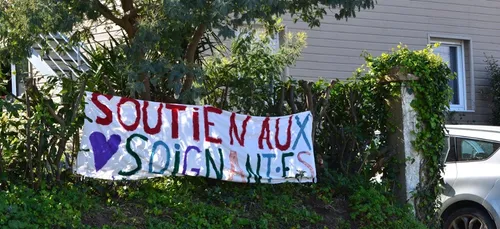 SOUTIEN AUX
SOIGNANT·ES